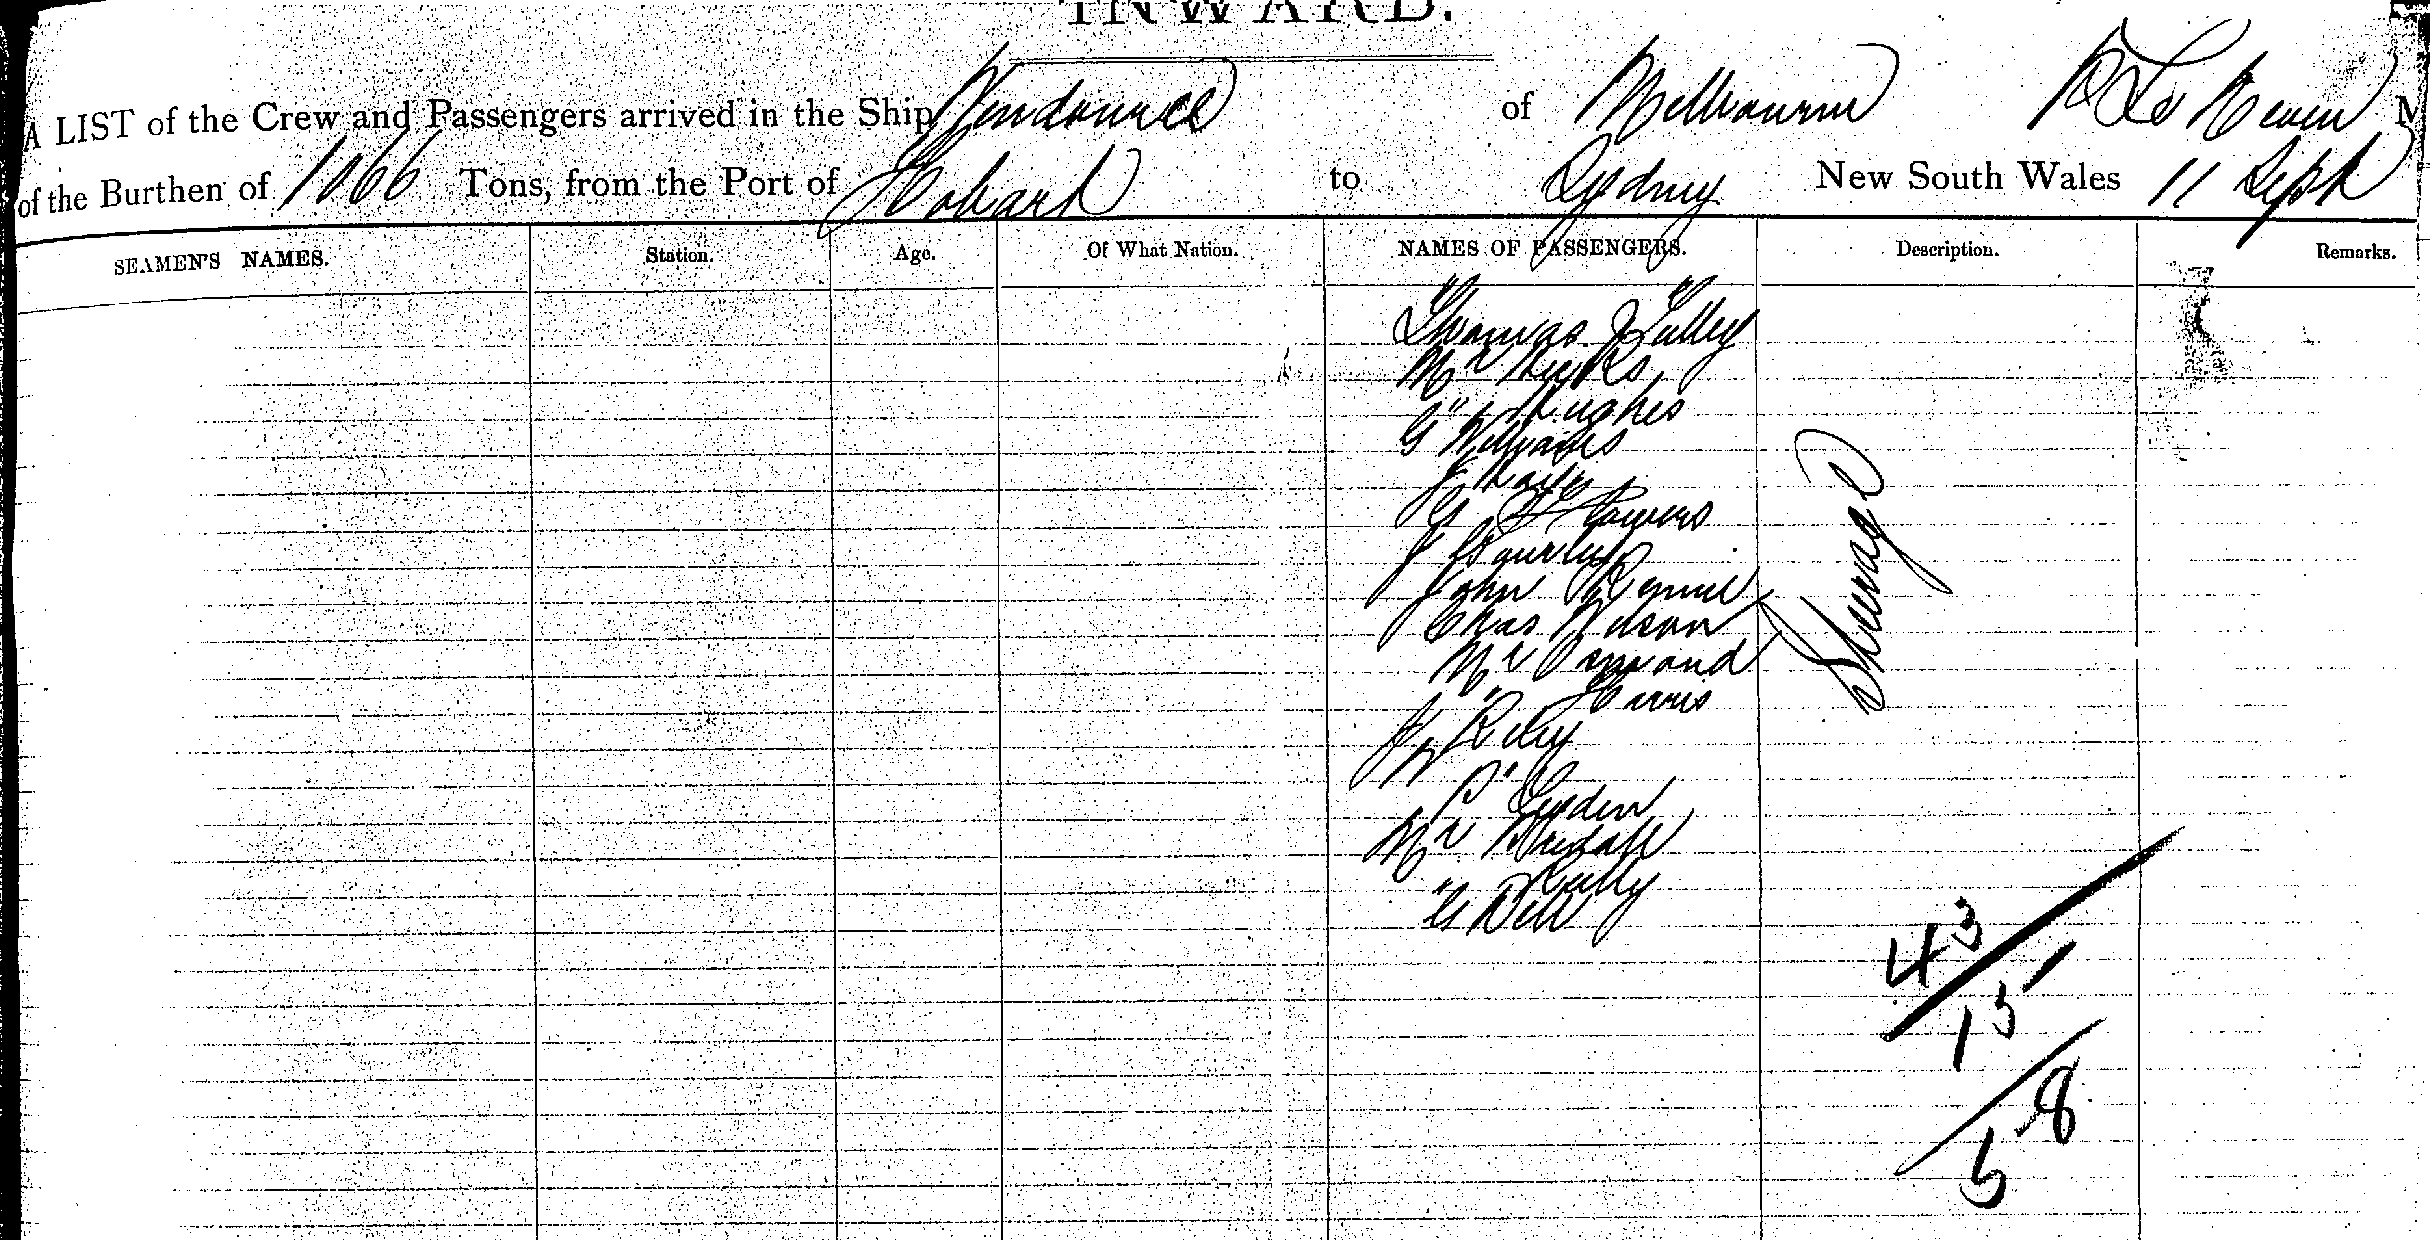 INWARD.
A LIST of the Crew and Passengers arrived in the Ship Wendouree of Melbourne
of the Burthen of 1066 Tons, from the Port of Hobart to Sydney New South Wales 11 Sept
SEAMEN'S NAMES. Station. Age. Of What Nation. NAMES OF PASSENGERS. Description. Remarks.
Thomas Tulley
Mr
" Hughes
G Williams
J
G Flowers
J Gourley
John Rennie
Chas Wilson
Mr Ormond
" Harris
Riley
Mr
" Kelly
G Dell
Steerage
43
15
58